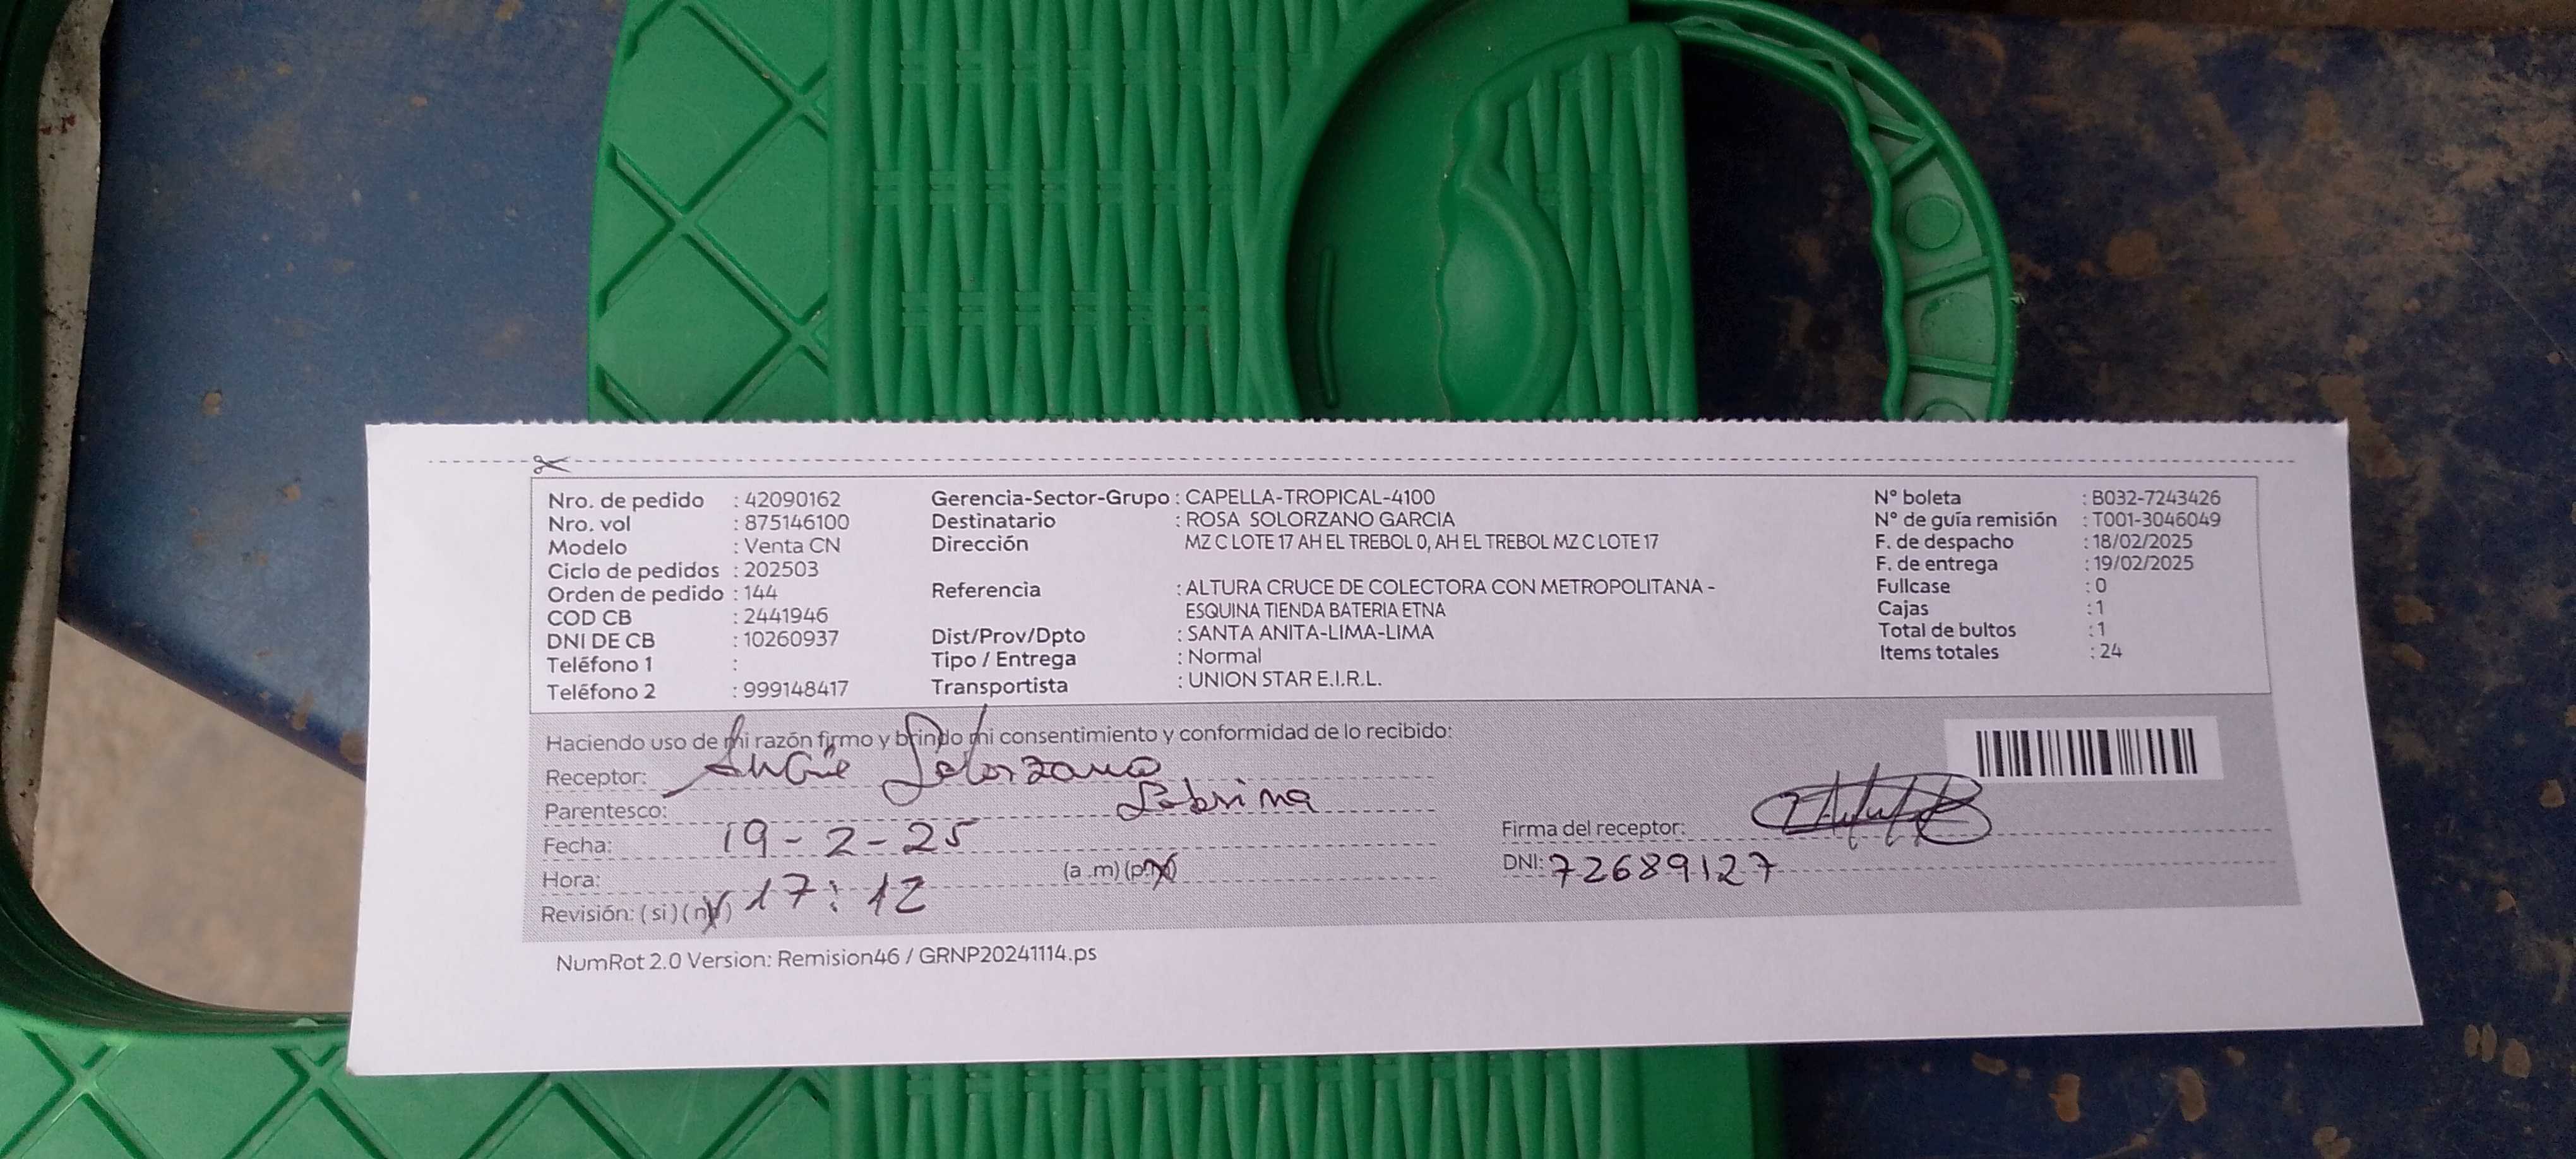 Nro. de pedido : 42090162 Gerencia-Sector-Grupo : CAPELLA-TROPICAL-4100 N° boleta : B032-7243426
Nro. vol : 875146100 Destinatario : ROSA SOLORZANO GARCIA N° de guía remisión : T001-3046049
Modelo : Venta CN Dirección MZ C LOTE 17 AH EL TREBOL 0, AH EL TREBOL MZ C LOTE 17 F. de despacho : 18/02/2025
Ciclo de pedidos : 202503 F. de entrega : 19/02/2025
Orden de pedido : 144 Referencia : ALTURA CRUCE DE COLECTORA CON METROPOLITANA - Fullcase : 0
COD CB : 2441946 ESQUINA TIENDA BATERIA ETNA Cajas : 1
DNI DE CB : 10260937 Dist/Prov/Dpto : SANTA ANITA-LIMA-LIMA Total de bultos : 1
Teléfono 1 : Tipo / Entrega : Normal Items totales : 24
Teléfono 2 : 999148417 Transportista : UNION STAR E.I.R.L.
Haciendo uso de mi razón firmo y brindo mi consentimiento y conformidad de lo recibido:
Receptor: Angie Solorzano
Parentesco: Sobrina
Fecha: 19-2-25 Firma del receptor:
Hora: 17:12 (a.m) (p.m) DNI: 72689127
Revisión: (si) (no)
NumRot 2.0 Version: Remision46 / GRNP20241114.ps